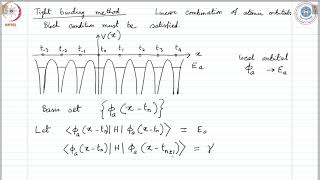 NPTEL
Tight binding method    Linear combination of atomic orbitals
Bloch condition must be satisfied.
V(x)
t₋₃ t₋₂ t₋₁ t₁ t₂ t₃ t₄ x
Eₐ
local orbital
ϕₐ → Eₐ
Basis set { ϕₐ (x-tₙ) }
Let ⟨ϕₐ(x-tₙ)|H|ϕₐ(x-tₙ)⟩ = Eₐ
⟨ϕₐ(x-tₙ)|H|ϕₐ(x-tₙ±₁)⟩ = γ